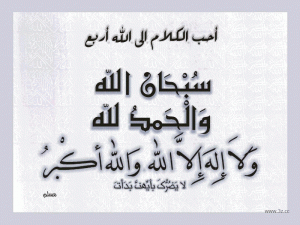 أحب الكلام الى الله أربع
سُبْحَانَ اللهِ
وَالْحَمْدُ للهِ
وَلاَ إِلهَ إِلاَّ اللهُ وَاللهُ أَكْبَرُ
لا يَضُرُّكَ بِأَيِّهِنَّ بَدَأْتَ
مسلم